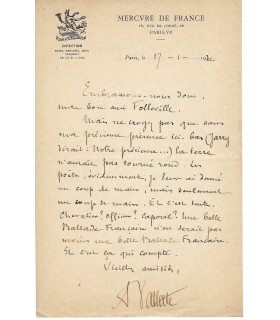 MERCVRE DE FRANCE
26, RVE DE CONDÉ, 26
PARIS-VIᵉ
DIRECTION
Paris, le 17 - 1 - 19
Embrassons-nous donc,
mon bon ami Folleville.
Mais ne croyez pas que sans
ma précieuse présence ici-bas (Jarry
dirait : Notre précieuse...) la terre
n'aurait pas tourné rond. Les
poëtes, évidemment, je leur ai donné
un coup de main, mais seulement
un coup de main. Et c'est tout.
Chevalier ? officier ? Caporal ? Une belle
Ballade Française n'en serait pas
moins une belle Ballade Française.
Et c'est ça qui compte.
Vieille amitié,
A Vallette